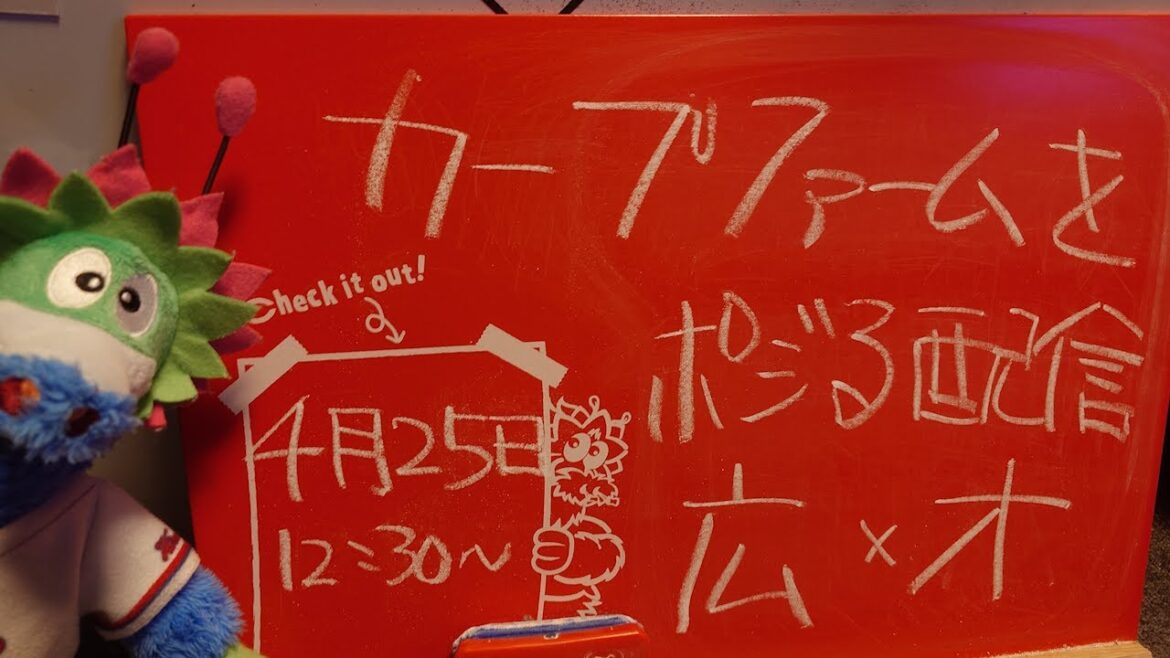 カープファームを
ポジる配信
広×オ
Check it out!
4月25日
12:30〜